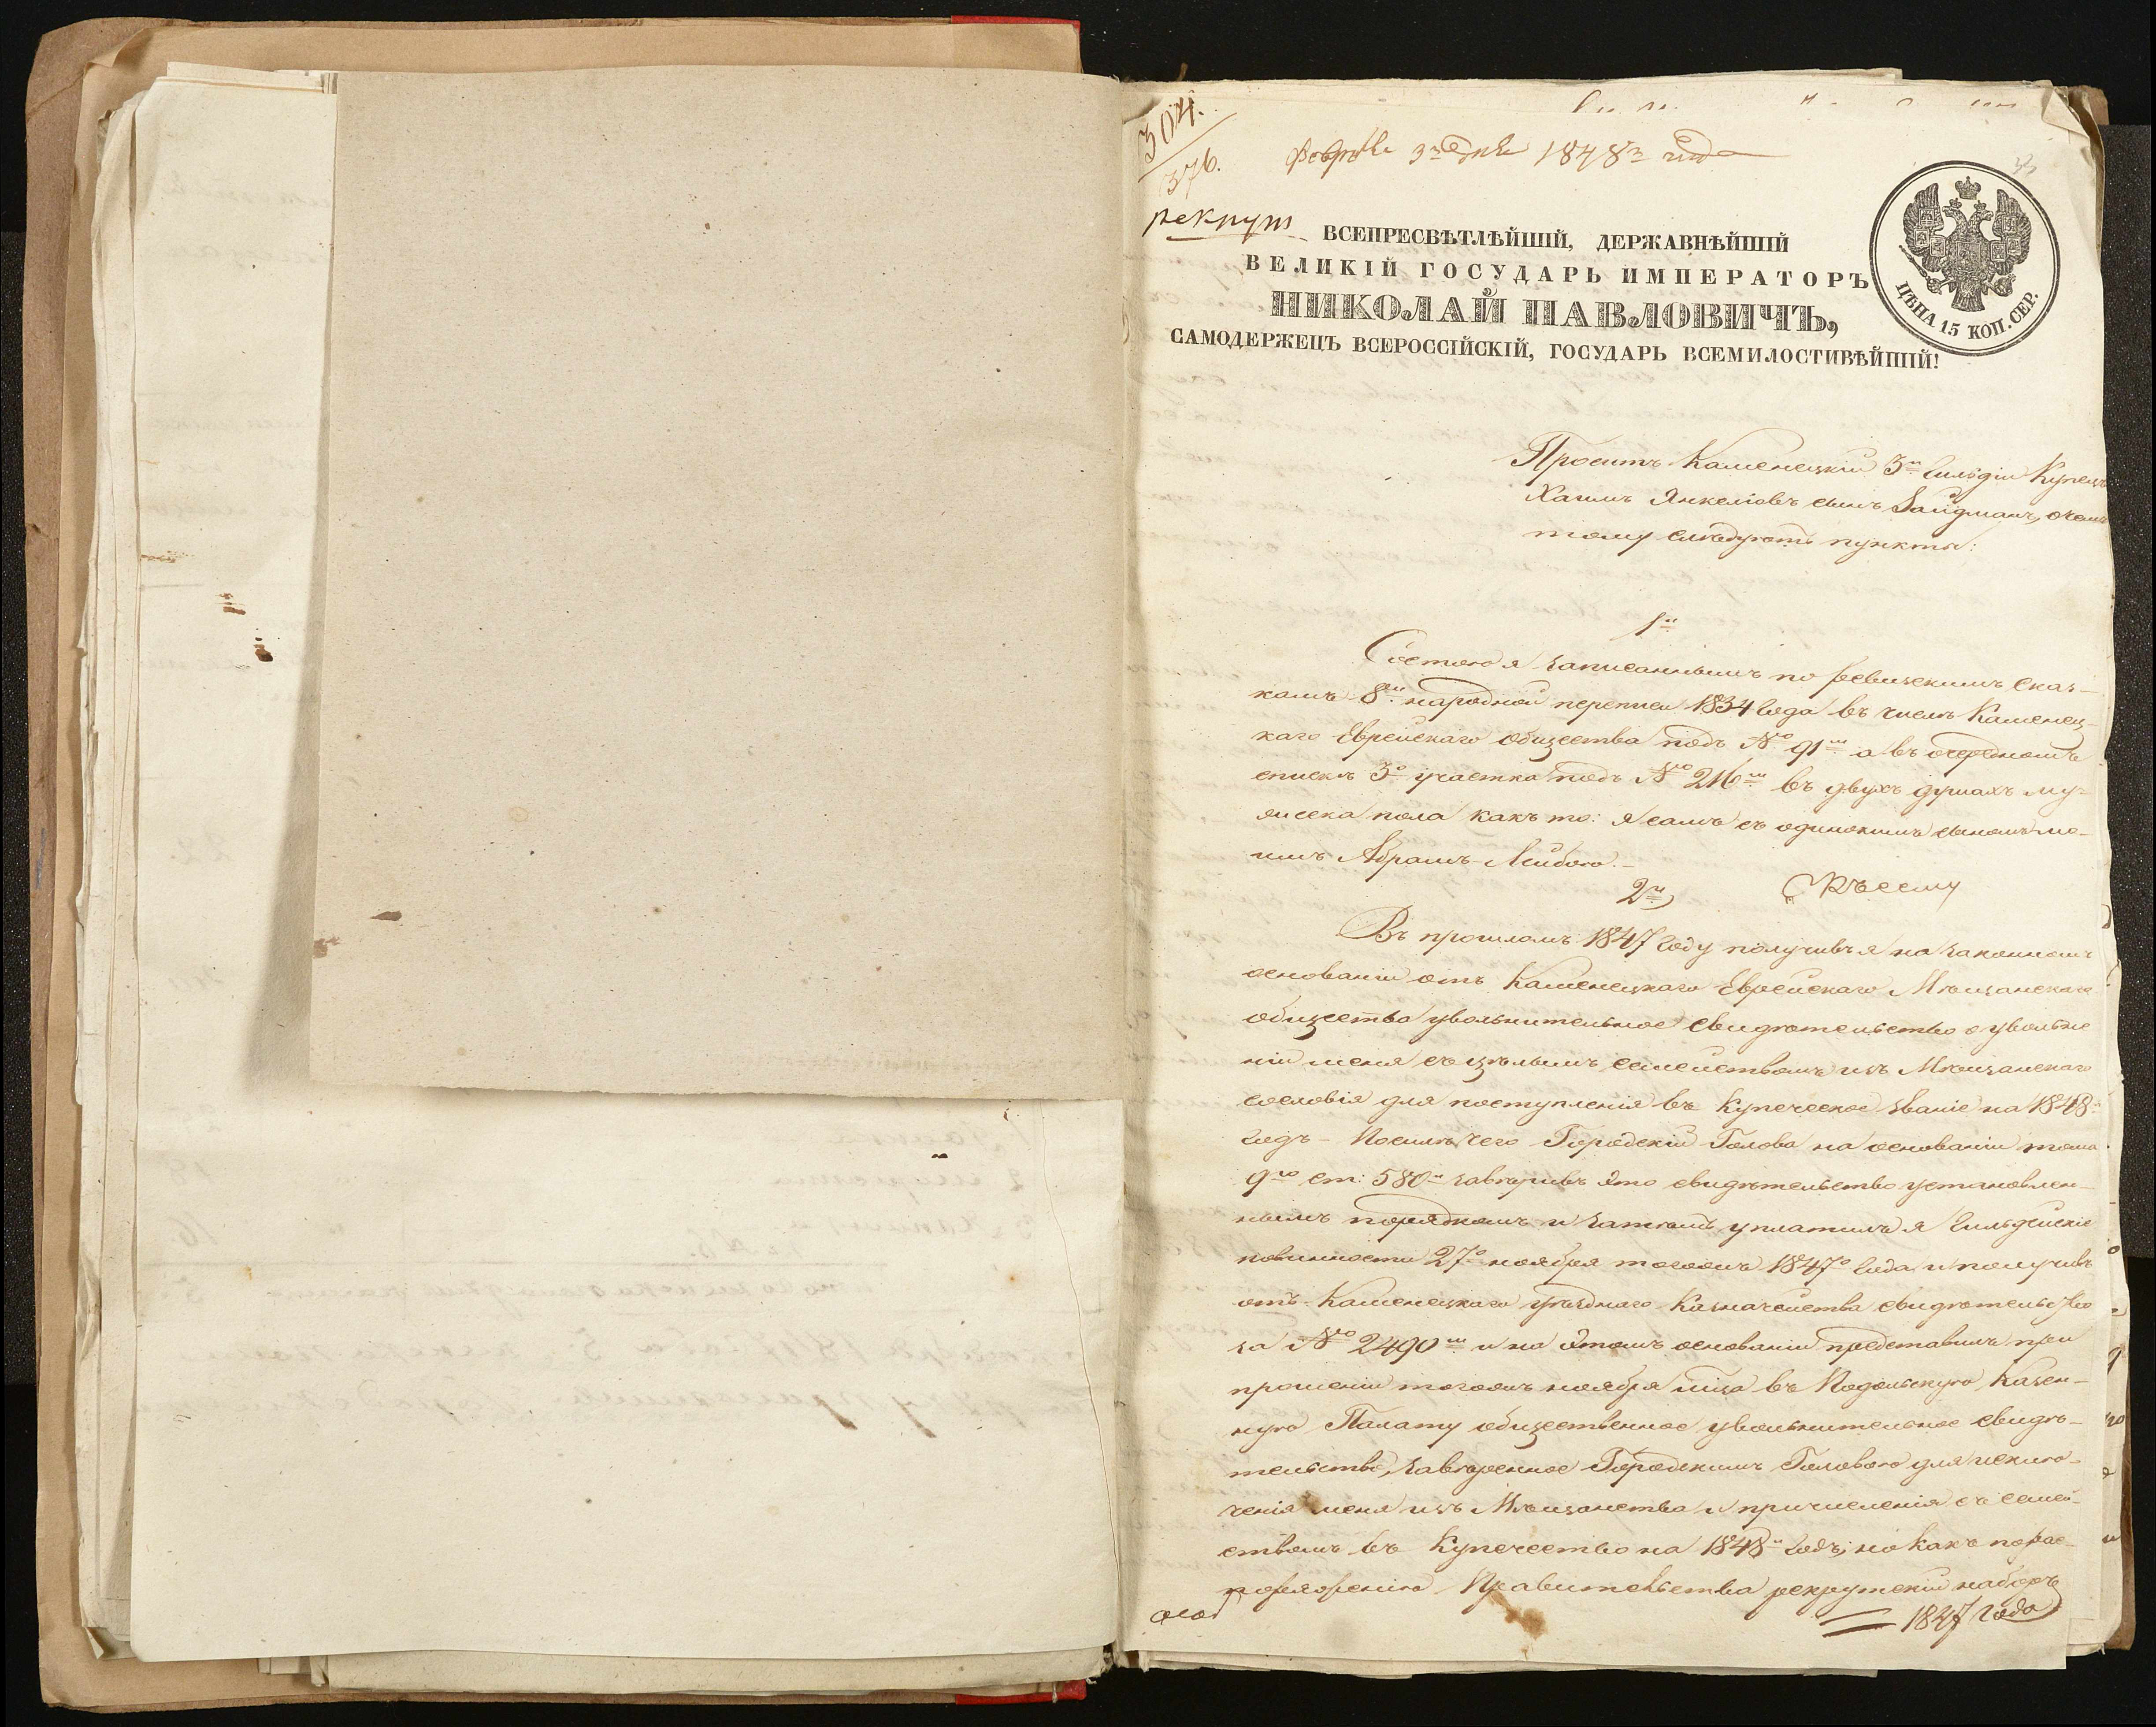 304.
376.
рекрут
Февраля 3го дня 1848го года
ВСЕПРЕСВѢТЛѢЙШІЙ, ДЕРЖАВНѢЙШІЙ
ВЕЛИКІЙ ГОСУДАРЬ ИМПЕРАТОРЪ
НИКОЛАЙ ПАВЛОВИЧЪ,
САМОДЕРЖЕЦЪ ВСЕРОССІЙСКІЙ, ГОСУДАРЬ ВСЕМИЛОСТИВѢЙШІЙ!
ЦѢНА 15 КОП. СЕР.
Проситъ Каменецкій 3й Гильдіи Купецъ
Хаимъ Янкеліовъ сынъ Зайдманъ, о чемъ
тому слѣдуютъ пункты:
1й
Состою я записаннымъ по ревизскимъ сказ-
камъ 8й народной переписи 1834 года въ числѣ Каменец-
каго Еврейскаго Общества подъ № 91м а въ очередномъ
спискѣ 3го участка подъ № 216м въ двухъ душахъ му-
жеска пола какъ то: я самъ съ одинокимъ сыномъ мо-
имъ Абрамъ-Лейбою.-
2й
Къ сему
Въ прошломъ 1847 году получивъ я на законномъ
основаніи отъ Каменецкаго Еврейскаго Мѣщанскаго
общества увольнительное свидѣтельство о увольне
ніи меня съ цѣлымъ семействомъ изъ Мѣщанскаго
сословія для поступленія въ Купеческое званіе на 1848й
годъ - Посилѣ чего Городскій Голова на основаніи тома
9го ст: 580й завѣривъ это свидѣтельство установлен-
нымъ порядкомъ и затѣмъ уплатилъ я Гильдейскіе
повинности 27го ноября тогожъ 1847го года и получивъ
отъ Каменецкаго уѣзднаго Казначейства свидѣтельство
за № 2490м и на этомъ основаніи представилъ при
прошеніи тогожъ ноября мца въ Подольскую Казен-
ную Палату общественное увольнительное свидѣ-
тельство, завѣренное Городскимъ Головою для исклю-
ченія меня изъ Мѣщанства и причисленія съ семей-
ствомъ въ Купечество на 1848й годъ; но какъ по рас-
поряженію Правительства рекрутскій наборъ
1847 года